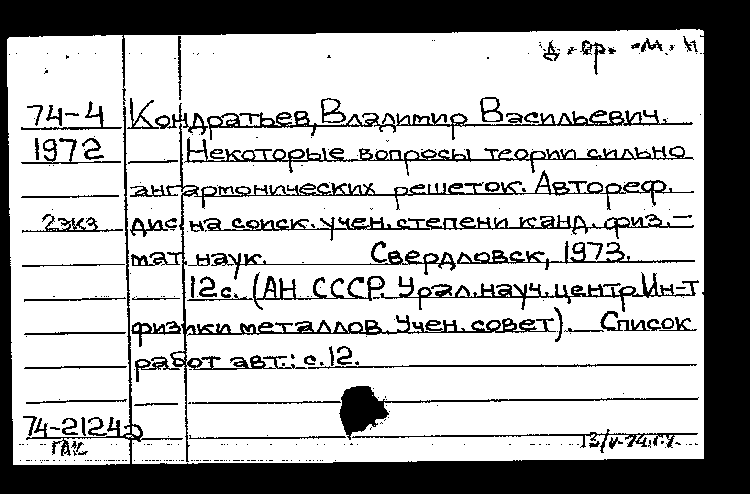 д. ф. -м. н
74-4 Кондратьев, Владимир Васильевич.
1972 Некоторые вопросы теории сильно
ангармонических решеток. Автореф.
2экз дис. на соиск. учен. степени канд. физ.-
мат. наук. Свердловск, 1973.
12с. (АН СССР. Урал. науч. центр. Ин-т.
физики металлов. Учен. совет). Список
работ авт.: с. 12.
74-21242
13/V-74.г.